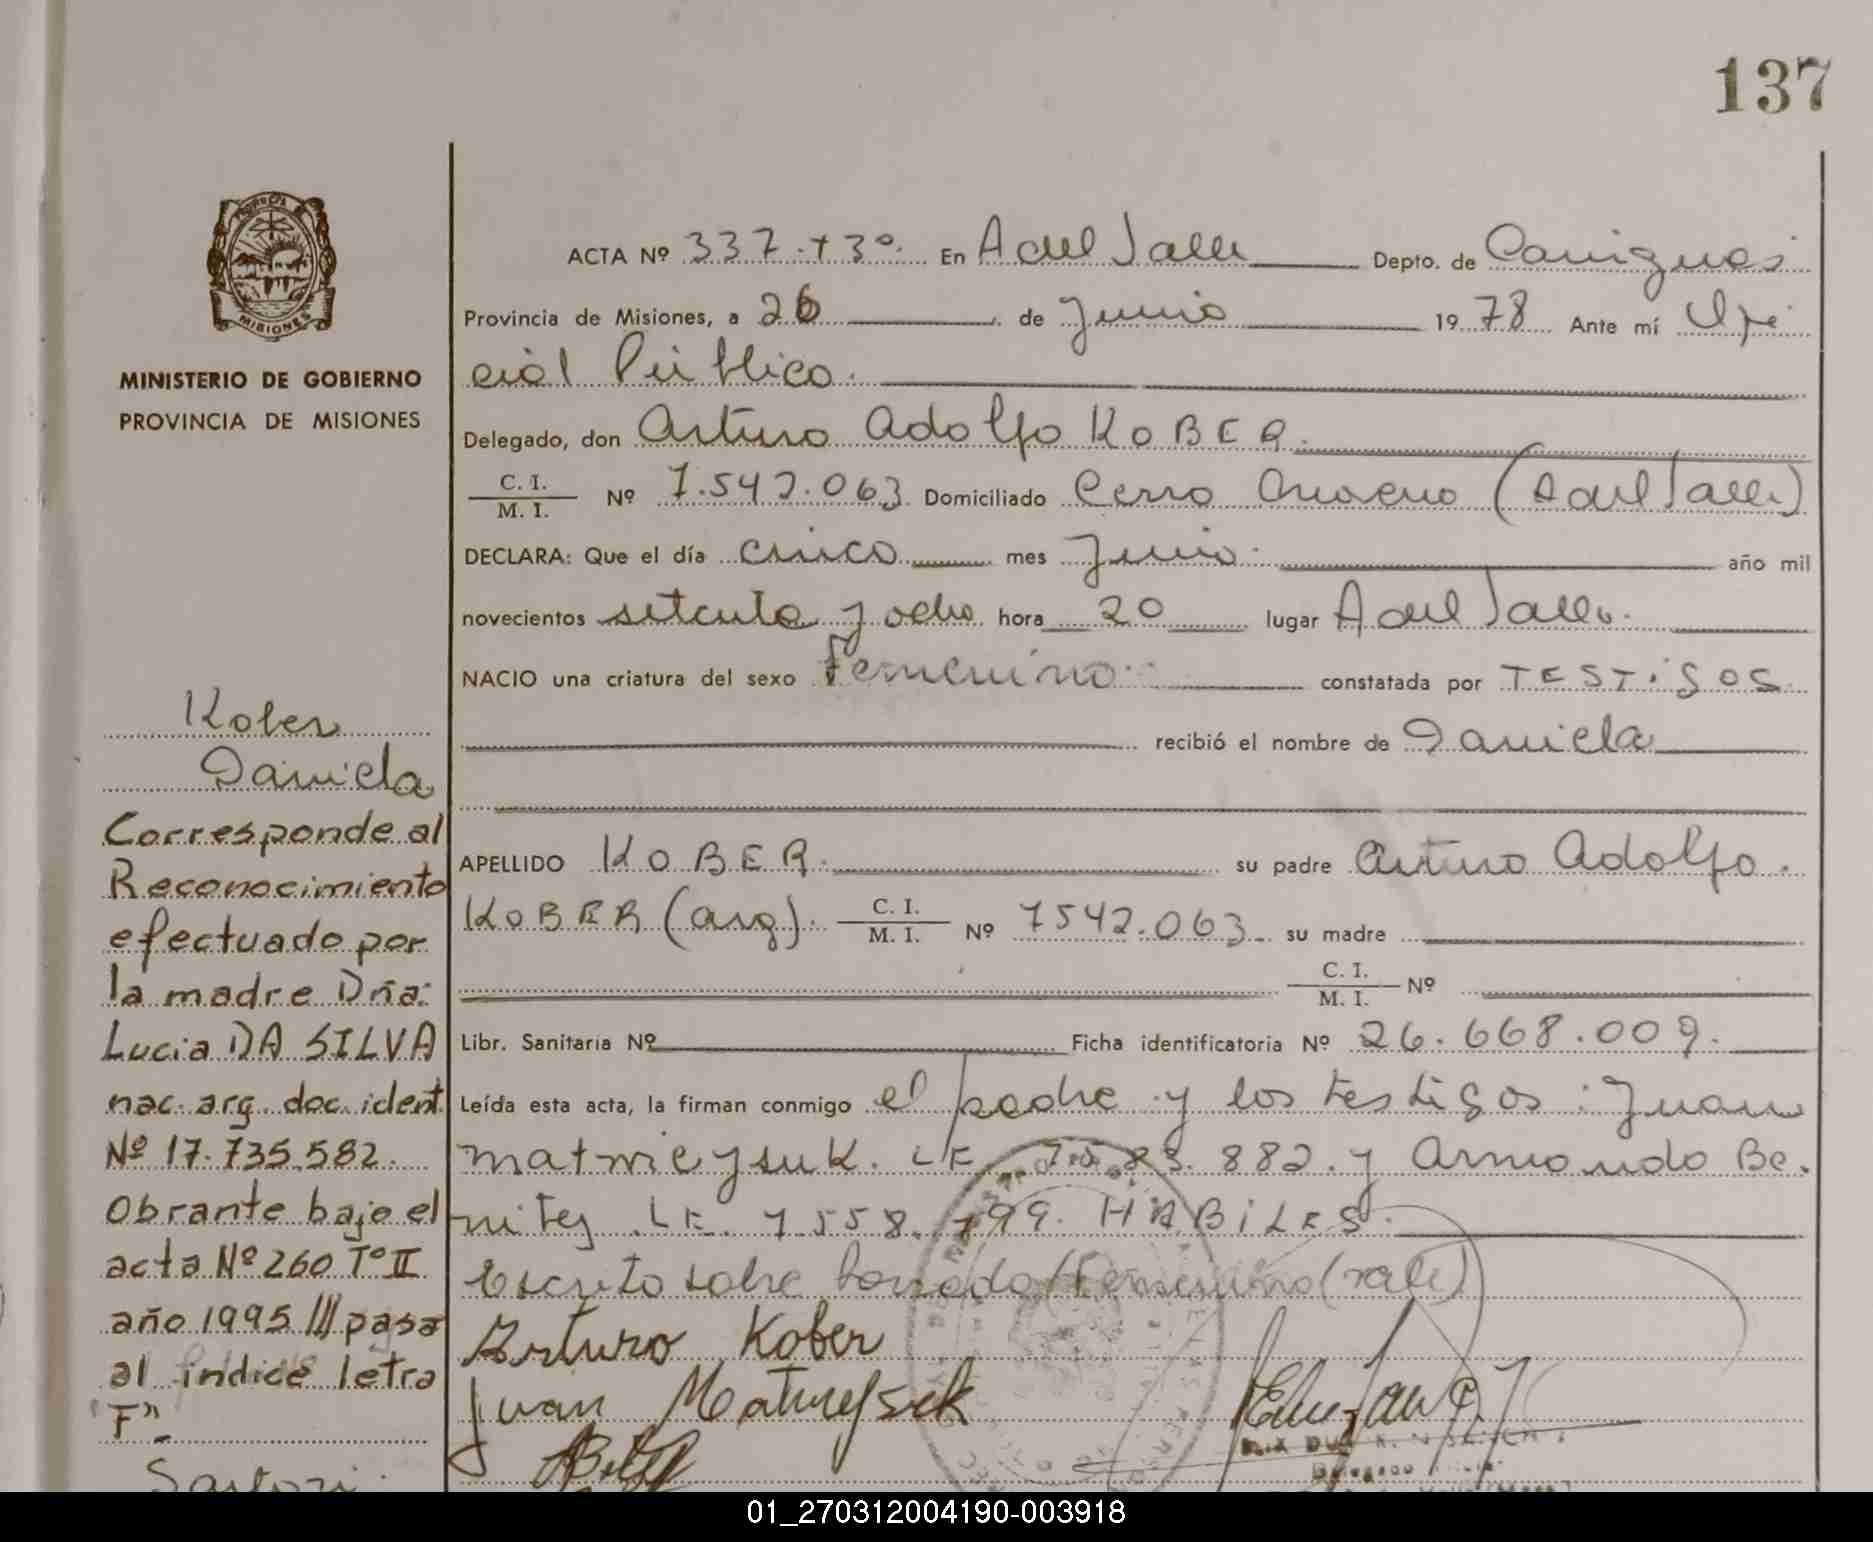 137
PROVINCIA DE MISIONES
MINISTERIO DE GOBIERNO
PROVINCIA DE MISIONES
ACTA Nº 337 - T 3º. En A del Valle Depto. de Cainguas
Provincia de Misiones, a 26 de Junio 1978 Ante mí Ofi
cial Público.
Delegado, don Arturo Adolfo KOBER.
C. I.
M. I. Nº 7.542.063 Domiciliado Cerro Moreno (A del Valle)
DECLARA: Que el día cinco mes Junio. año mil
novecientos setenta y ocho hora 20 lugar A del Valle.
NACIO una criatura del sexo Femenino. constatada por TESTIGOS
recibió el nombre de Daniela
APELLIDO KOBER. su padre Arturo Adolfo.
KOBER (arg). C. I.
M. I. Nº 7542.063. su madre
C. I.
M. I. Nº
Libr. Sanitaria Nº Ficha identificatoria Nº 26.668.009.
Leída esta acta, la firman conmigo el padre y los testigos: Juan
LE 882. y Armando Be.
nitez. LE. 7.558.199. HABILES.
Escrito sobre borrado/Femenino (vale)
Arturo Kober
Juan
Kober
Daniela
Corresponde al
Reconocimiento
efectuado por
la madre Dña:
Lucia DA SILVA
nac. arg. doc. ident.
Nº 17.735.582.
Obrante bajo el
acta Nº 260 Tº II
año 1995 /// pasa
al indice letra
"F".
Sartori.
01_270312004190-003918